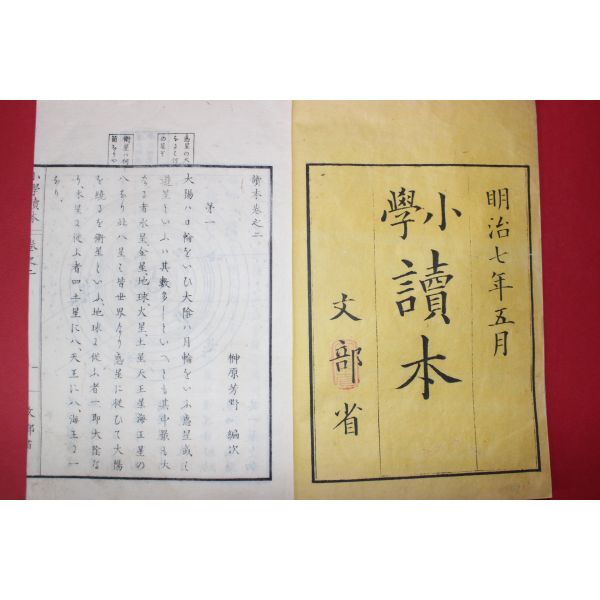 明治七年五月
小學
讀本
文部省
讀本卷之二
榊原芳野 編次
第一
太陽ハ日輪をいひ太陰ハ月輪をいふ惑星或ハ
遊星といふハ其數多しといへとも其中最も大
なる者水星金星地球、火星、土星天王星海王星の
八なり此八星ハ皆世界なり惑星に從ひて太陽
を繞るを衛星といふ、地球に從ふ者一即太陰な
り、木星に從ふ者四、土星に八、天王に八、海王に一
なり、
惑星の大
衛星ハ何
小學讀本 卷之二
一
文部省